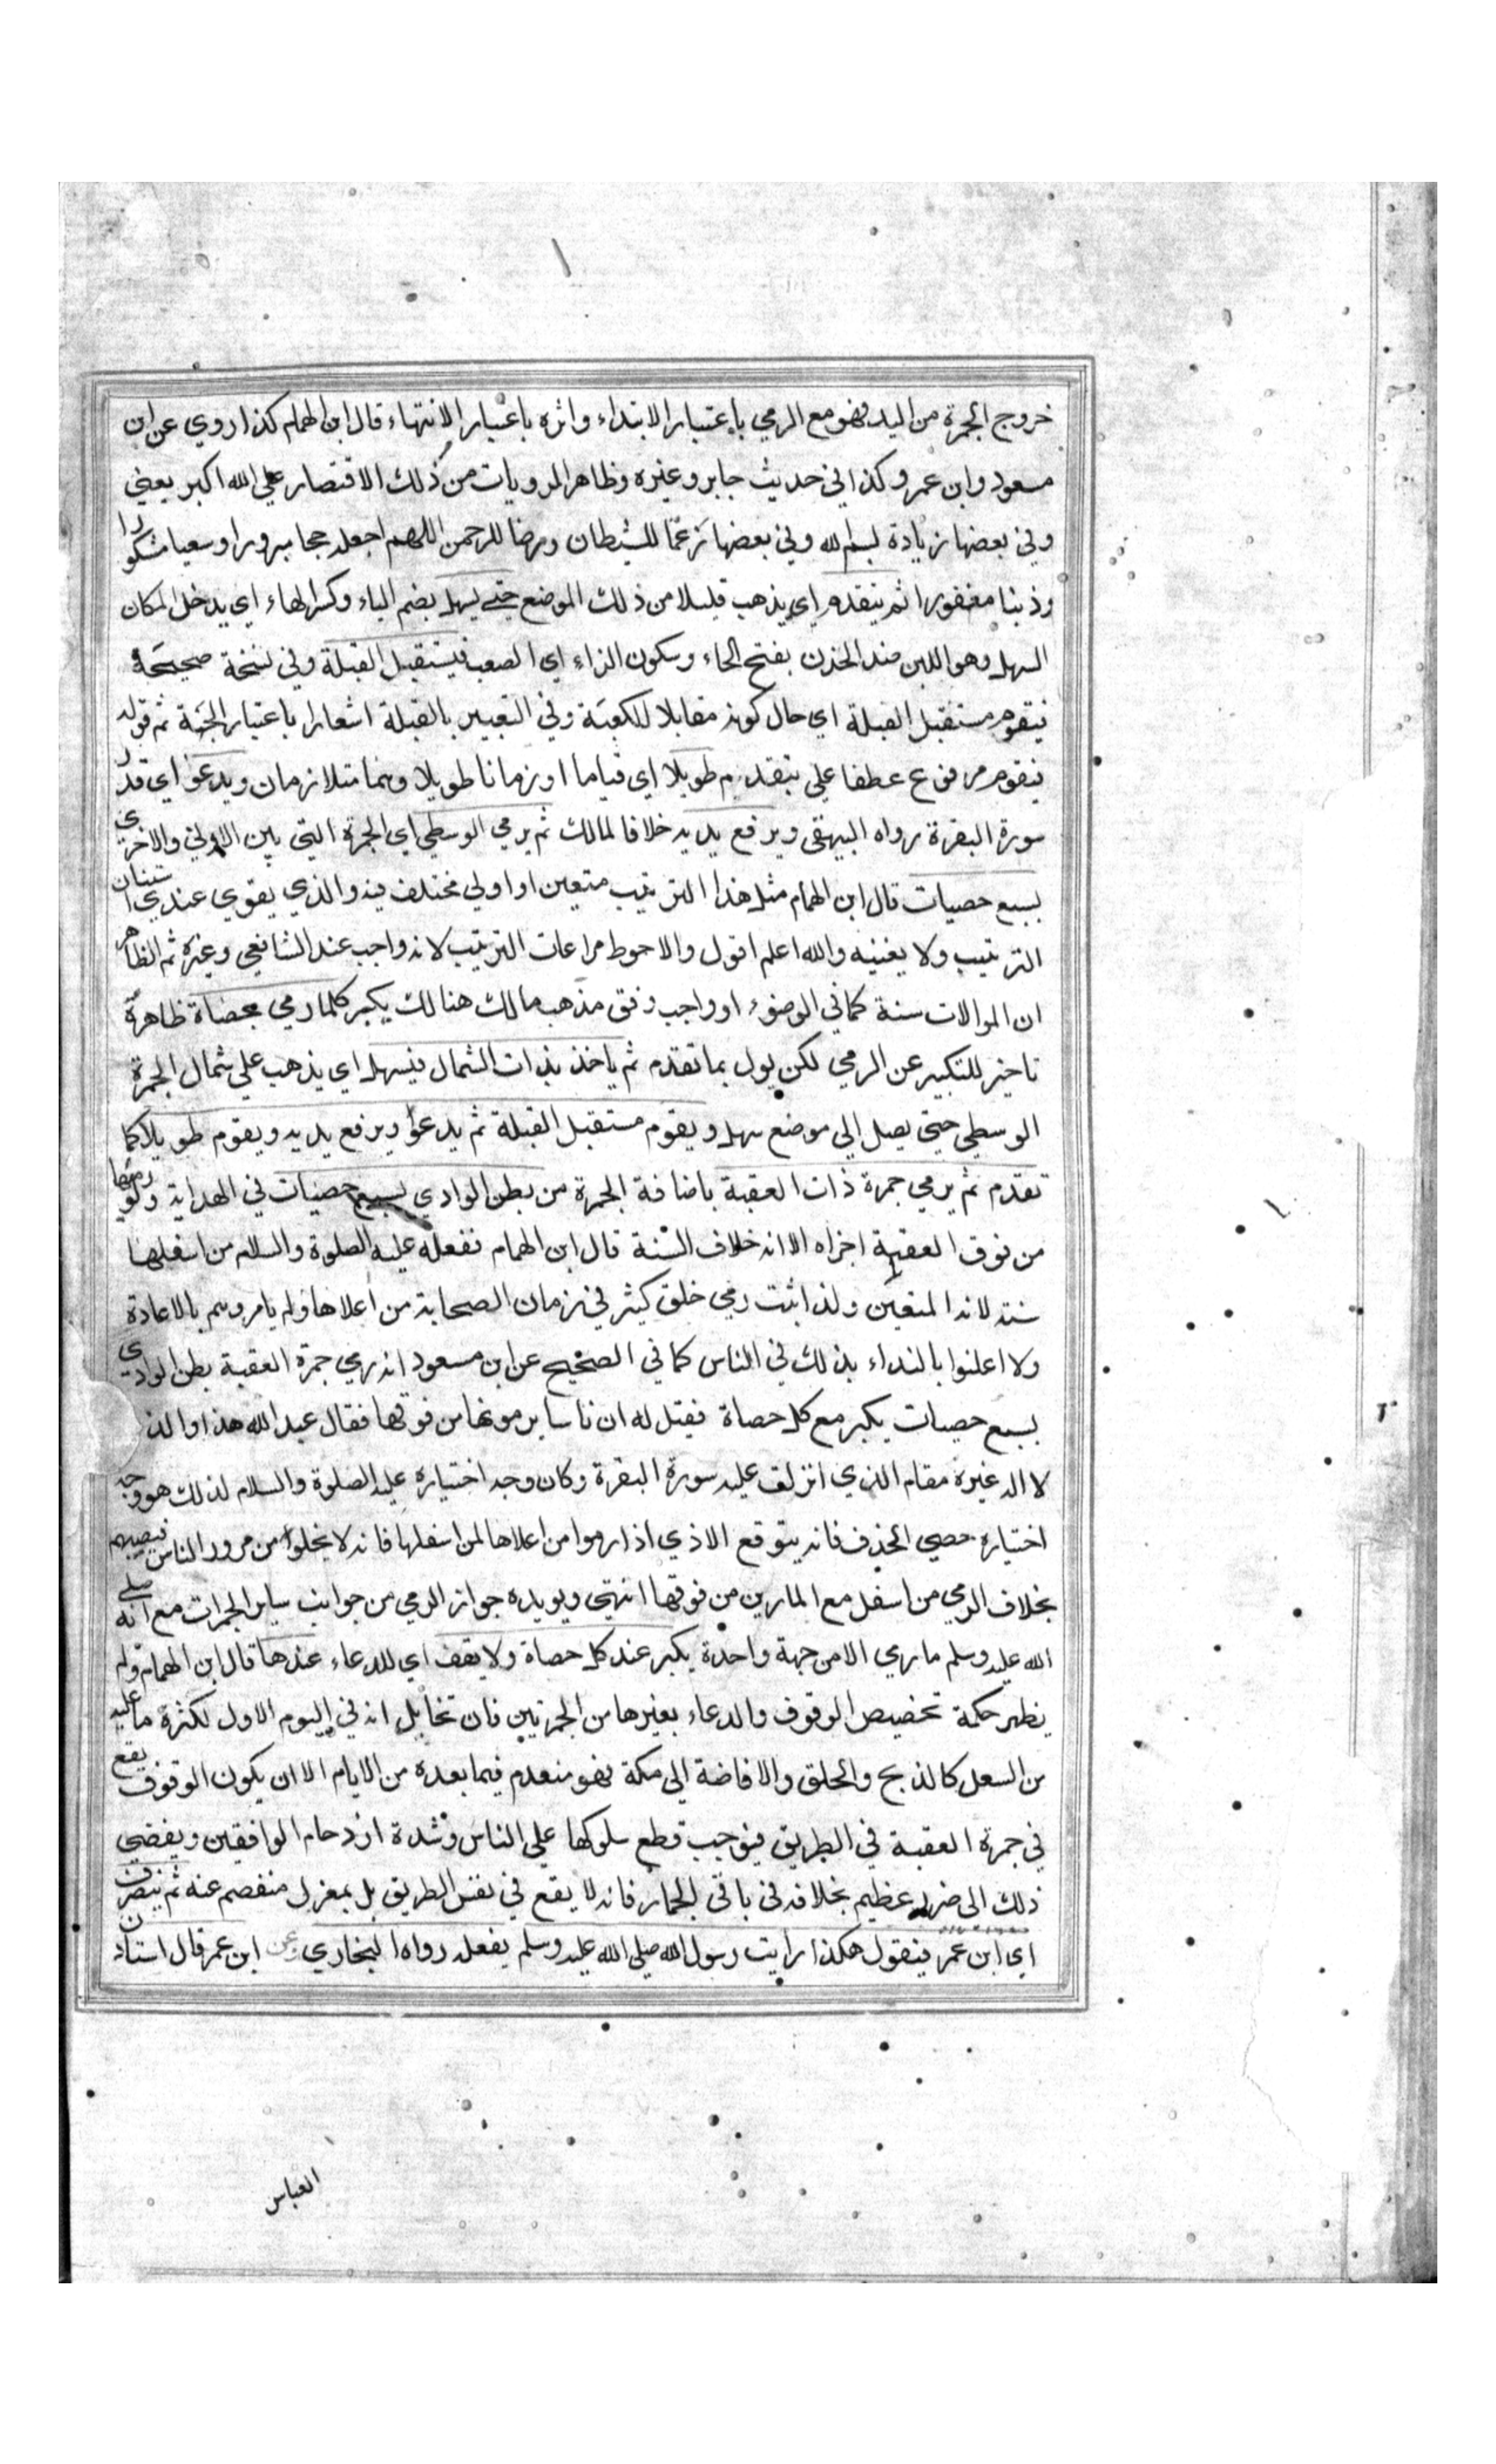 خروج الجمرة من اليد فهو مع الرمي باعتبار الابتداء واثره باعتبار الانتهاء قال ابن الهمام كذا روي عن ابن
مسعود وابن عمر وكذا في حديث جابر وغيره وظاهر المرويات من ذلك الاقتصار علي الله اكبر يعني
وفي بعضها زيادة بسم الله وفي بعضها زعما للشيطان ورضا للرحمن اللهم اجعله حجا مبرورا وسعيا مشكورا
وذنبا مغفورا ثم يتقدم اي يذهب قليلا من ذلك الموضع حتي يسهل بضم الياء وكسر الهاء اي يدخل المكان
السهل وهو اللين ضد الحزن بفتح الحاء وسكون الزاء اي الصعب فيستقبل القبلة وفي نسخة صحيحة
فيقوم مستقبل القبلة اي حال كونه مقابلا للكعبة وفي التعبير بالقبلة اشعارا باعتبار الجهة ثم قوله
فيقوم مرفوع عطفا علي يتقدم طويلا اي قياما او زمانا طويلا وهما متلازمان ويدعو اي قدر
سورة البقرة رواه البيهقي ويرفع يديه خلافا لمالك ثم يرمي الوسطي اي الجمرة التي بين الاولي والاخري
بسبع حصيات قال ابن الهمام مثل هذا الترتيب متعين او اولي مختلف فيه والذي يقوي عندي استنان
الترتيب ولا يعنيه والله اعلم اقول والاحوط مراعات الترتيب لانه واجب عند الشافعي وغيره ثم الظاهر
ان الموالات سنة كما في الوضوء او واجب وفق مذهب مالك هنالك يكبر كلما رمي بحصاة ظاهرة
تاخير للتكبير عن الرمي لكن يول بما تقدم ثم ياخذ بذات الشمال فيسهل اي يذهب علي شمال الجمرة
الوسطي حتي يصل الي موضع سهل ويقوم مستقبل القبلة ثم يدعو ويرفع يديه ويقوم طويلا كما
تقدم ثم يرمي جمرة ذات العقبة باضافة الجمرة من بطن الوادي بسبع حصيات في الهداية ولو رماها
من فوق العقبة اجزاه الا انه خلاف السنة قال ابن الهمام ففعله عليه الصلوة والسلام من اسفلها
سنته لانه المتعين ولذا ثبت رمي خلق كثير في زمان الصحابة من اعلاها ولم يامروهم بالاعادة
ولا اعلنوا بالنداء بذلك في الناس كما في الصحيح عن ابن مسعود انه رمي جمرة العقبة بطن الوادي
بسبع حصيات يكبر مع كل حصاة فقيل له ان ناسا يرمونها من فوقها فقال عبد الله هذا والذ
لا اله غيره مقام الذي انزلت عليه سورة البقرة وكان وجه اختياره عليه الصلوة والسلام لذلك هو وجه
اختياره حصي الخذف فانه يتوقع الاذي اذا رموا من اعلاها لمن اسفلها فانه لا يخلوا من مرور الناس فيصيبهم
بخلاف الرمي من اسفل مع المارين من فوقها انتهي ويويده جواز الرمي من جوانب ساير الجمرات مع انه صلي
الله عليه وسلم ما رمي الا من جهة واحدة يكبر عند كل حصاة ولا يقف اي للدعاء عندها قال ابن الهمام ولم
يظهر حكمة تخصيص الوقوف والدعاء بغيرها من الجمرتين فان تخايل انه في اليوم الاول لكثرة ما عليه
من الشغل كالذبح والحلق والافاضة الي مكة فهو منعدم فيما بعده من الايام الا ان يكون الوقوف يقع
في جمرة العقبة في الطريق فيوجب قطع سلوكها علي الناس وشدة ازدحام الواقفين ويفضي
ذلك الي ضرر عظيم بخلافه في باقي الجمار فانه لا يقع في نفس الطريق بل بمعزل منفصم عنه ثم ينصرف
اي ابن عمر فيقول هكذا رايت رسول الله صلي الله عليه وسلم يفعله رواه البخاري عن ابن عمر قال استاذن
العباس